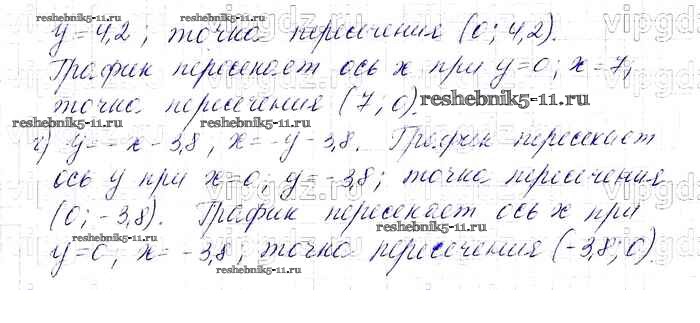 y=4,2; точка пересечения (0; 4,2).
График пересекает ось x при y=0; x=7;
точка пересечения (7; 0).
г) y=-x-3,8; x=-y-3,8. График пересекает
ось y при x=0; y=-3,8; точка пересечения
(0; -3,8). График пересекает ось x при
y=0; x=-3,8; точка пересечения (-3,8; 0).
reshebnik5-11.ru
reshebnik5-11.ru
reshebnik5-11.ru
reshebnik5-11.ru
reshebnik5-11.ru
reshebnik5-11.ru
reshebnik5-11.ru
reshebnik5-11.ru
vipgdz.ru